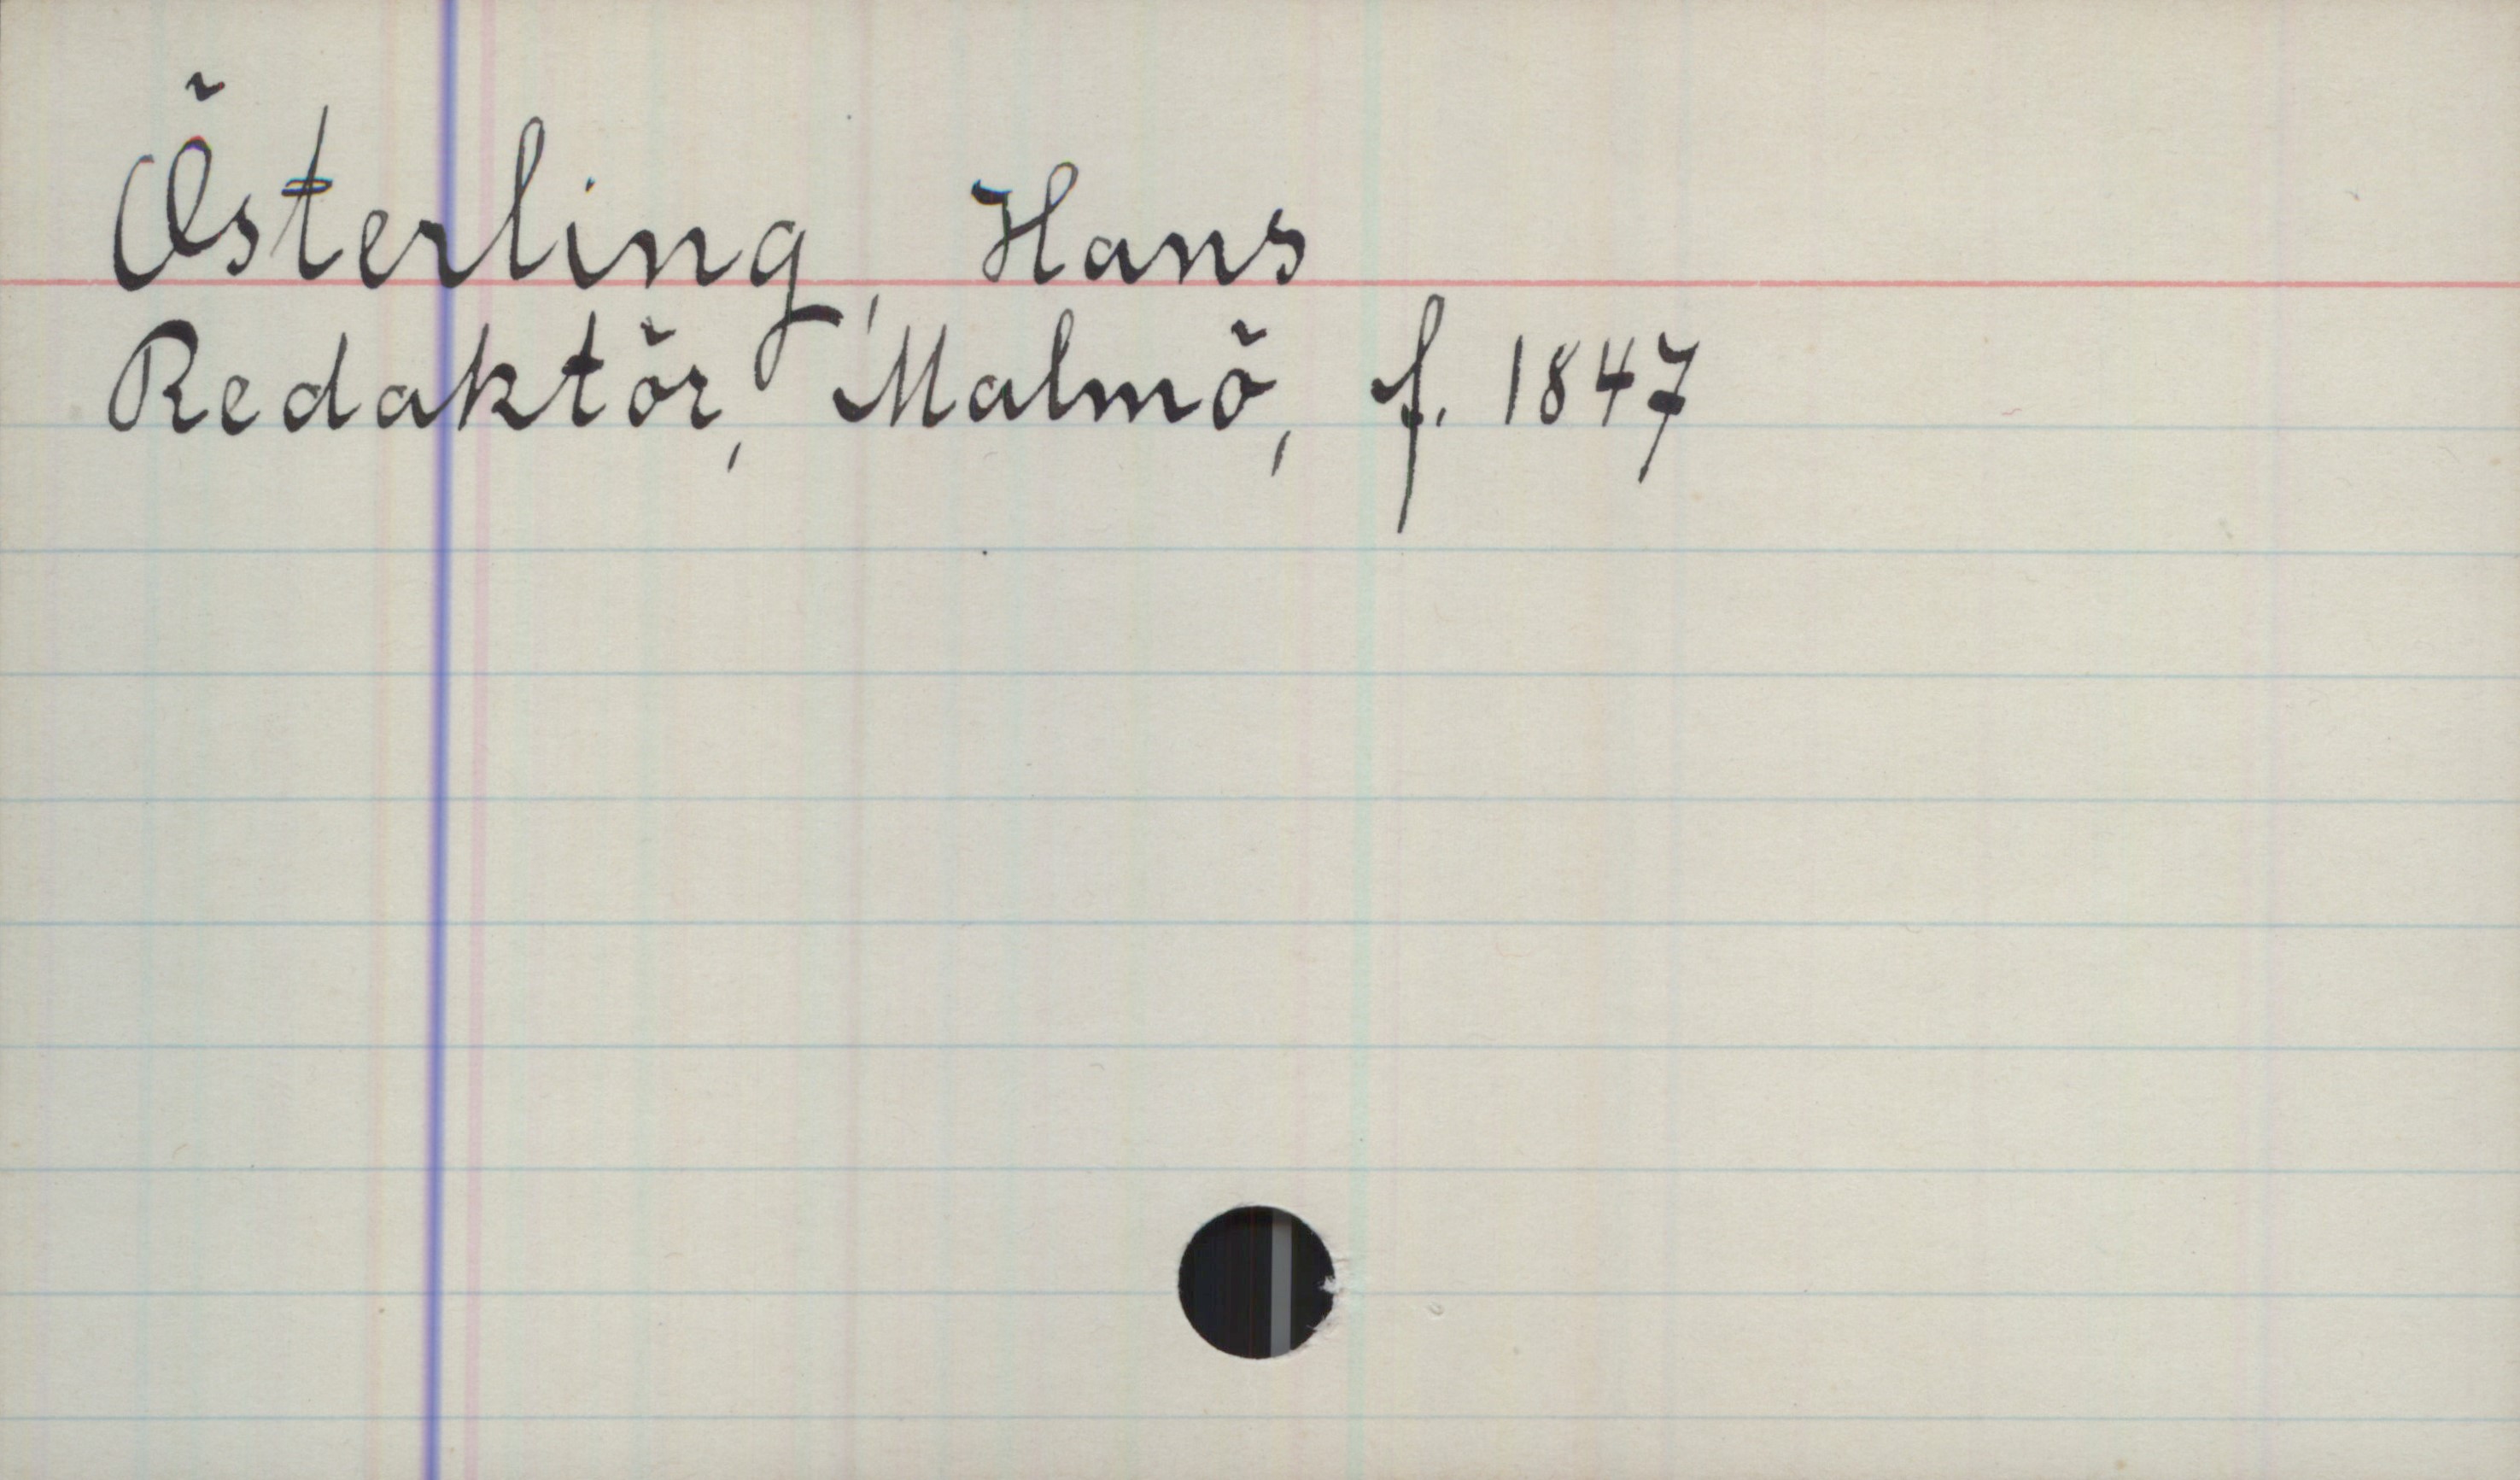 Österling, Hans
Redaktör, Malmö, f. 1847